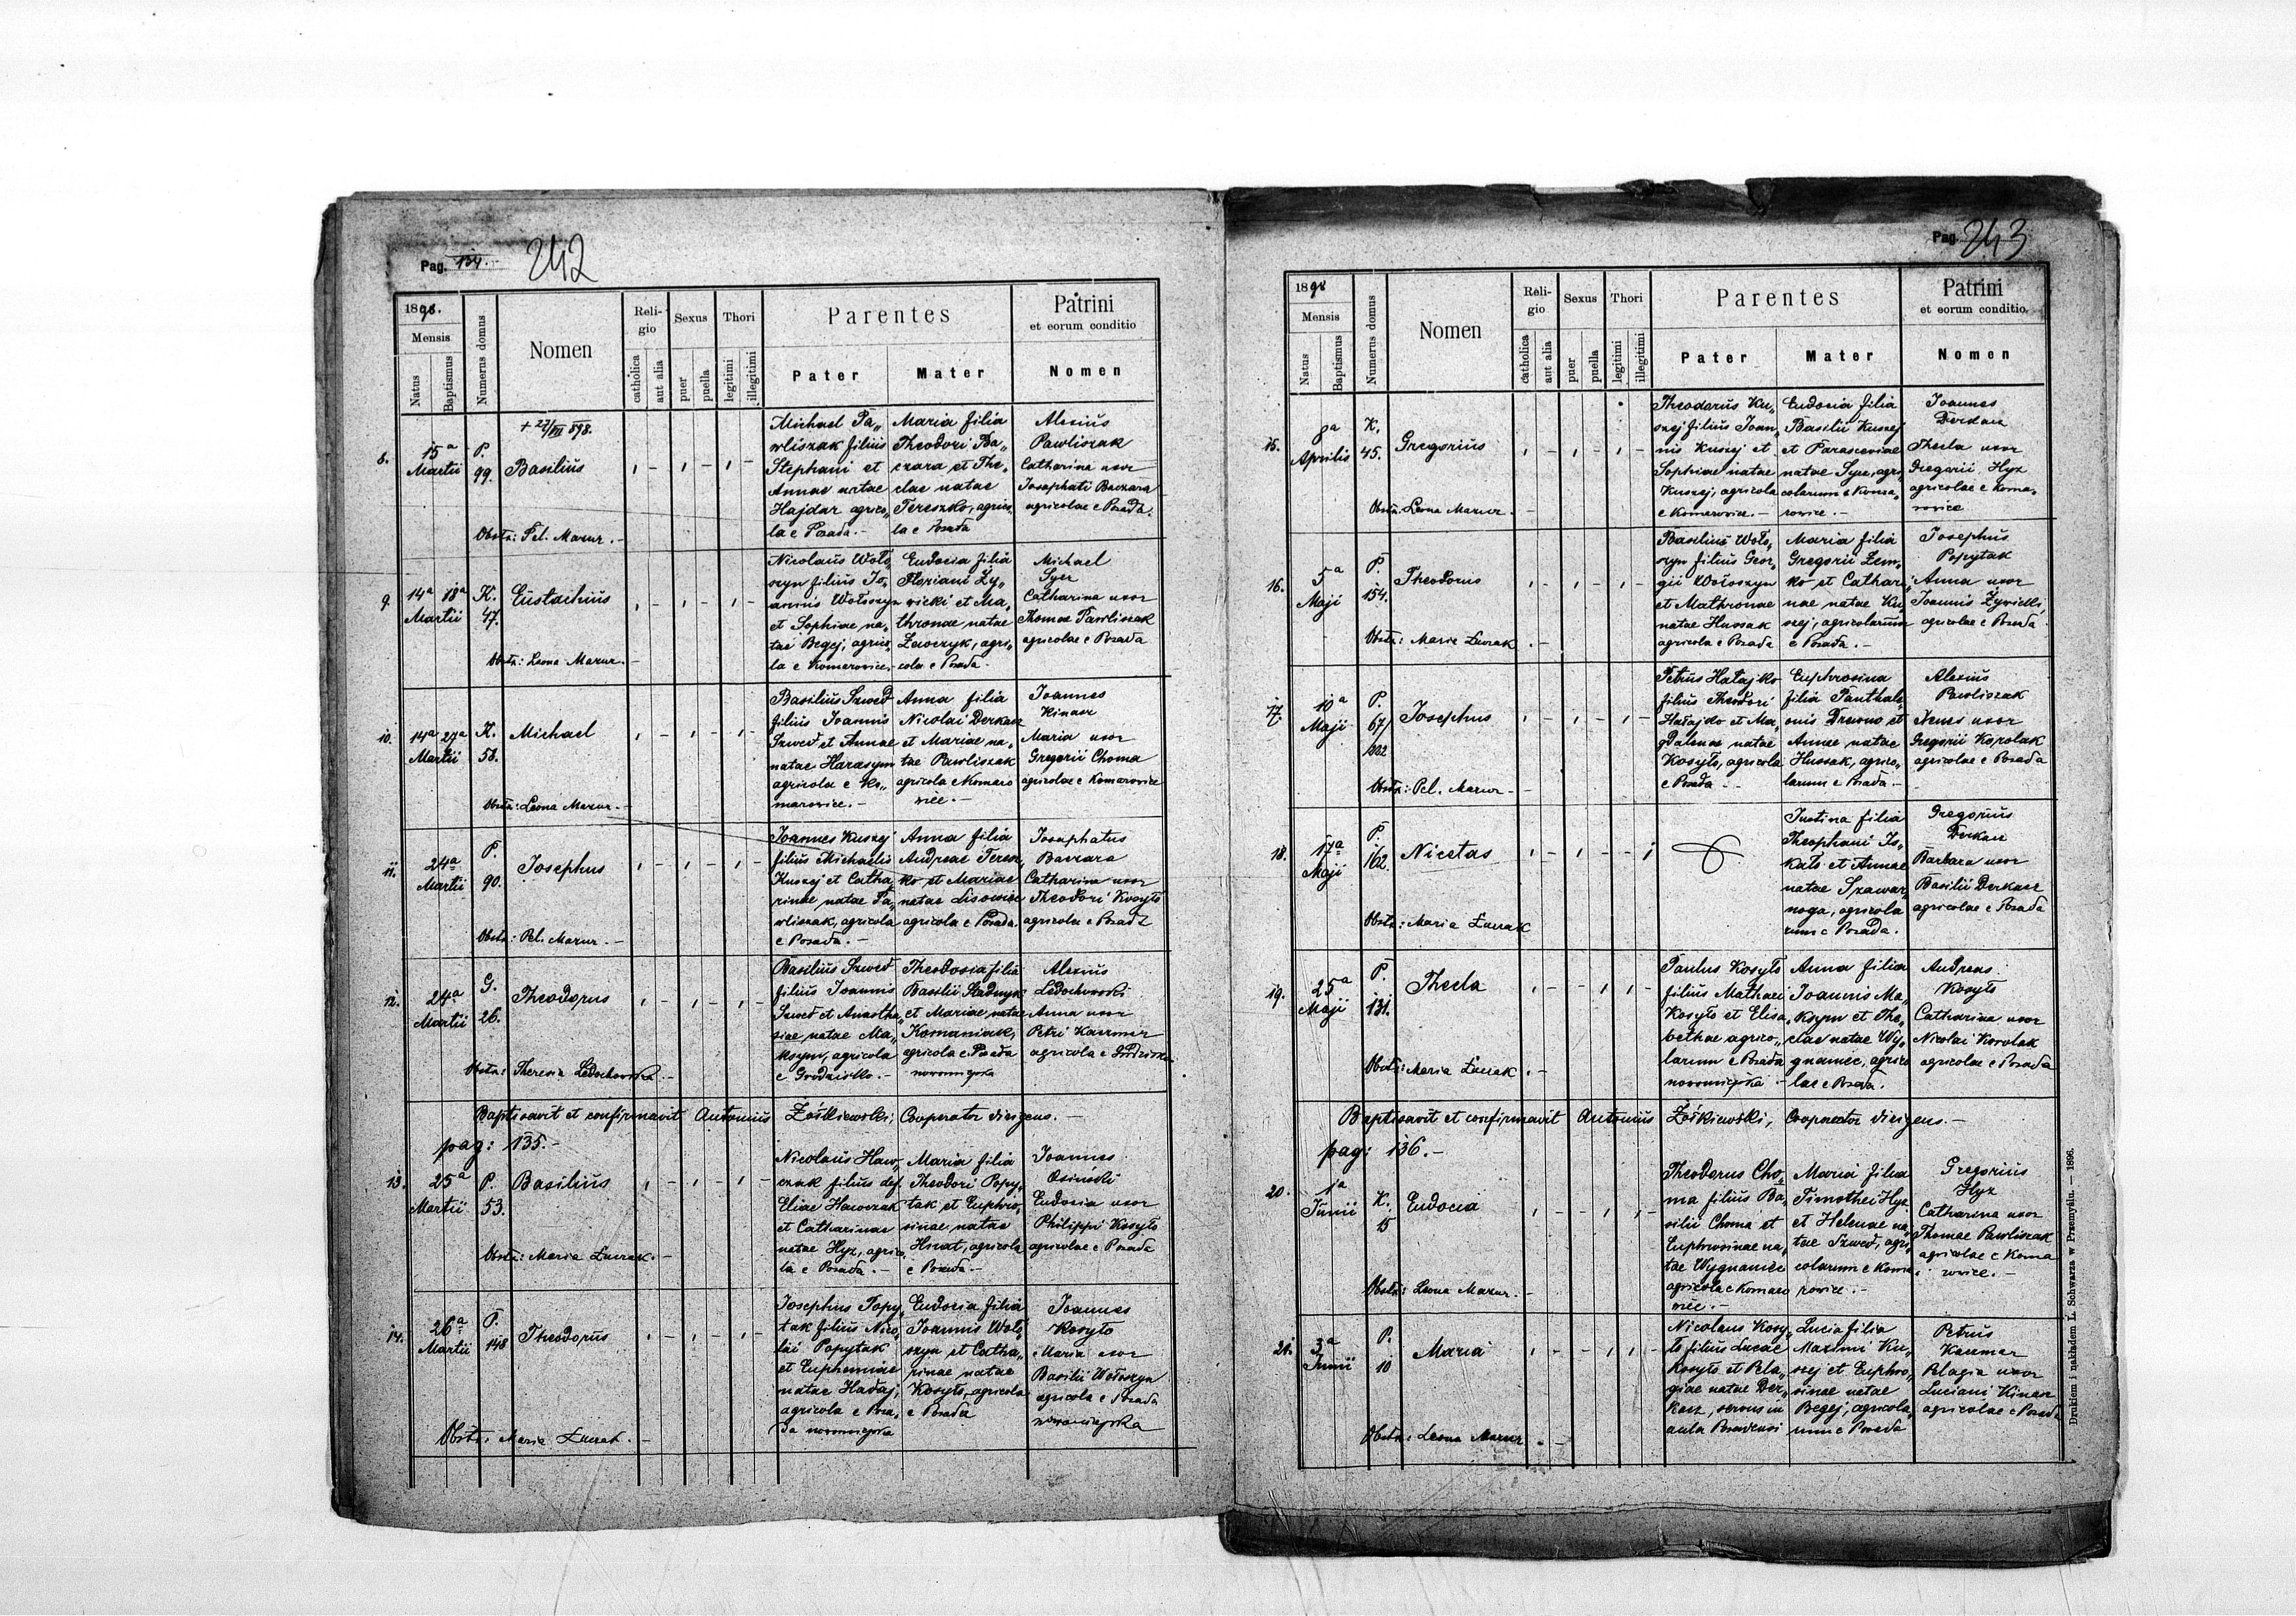 Pag. 134. 242
1898.
Mensis
Natus
Baptismus
Numerus domus
Nomen
Religio
catholica
aut alia
Sexus
puer
puella
Thori
legitimi
illegitimi
Parentes
Pater
Mater
Patrini
et eorum conditio
Nomen
8.
15a
Martii
P.
99.
+ 27/VII 898.
Basilius
Obstr: Pel. Mazur. -
Michael Pa„
wliszak filius
Stephani et
Annae natae
Hajdar agrico„
la e Posada. -
Maria filia
Theodori Ba„
czara et The„
clae natae
Tereszko, agrico„
la e Posada
Alexius
Pawliszak
Catharina uxor
Josaphati Baczara
agricolae e Posada.
9.
14a 18a
Martii
K.
47.
Eustachius
Obstr: Leona Mazur. -
Nicolaus Woło„
szyn filius Jo„
annis Wołoszyn
et Sophiae na„
tae Begej, agrico„
la e Komarowice.
Eudocia filia
Floriani Ży„
wicki et Ma„
thronae natae
Zawczyk, agri„
cola e Posada.
Michael
Syez
Catharina uxor
Thomae Pawliszak
agricolae e Posada
10.
14a 27a
Martii
K.
58.
Michael
Obstr: Leona Mazur. -
Basilius Szwed
filius Joannis
Szwed et Annae
natae Harasym
agricola e Ko„
marowice. -
Anna filia
Nicolai Derkacz
et Mariae na„
tae Pawliszak
agricola e Komaro
wice. -
Joannes
Kinasz
Maria uxor
Gregorii Choma
agricolae e Komarowice
11.
24a
Martii
P.
90.
Josephus
Obstr: Pel. Mazur. -
Joannes Kuszej
filius Michaelis
Kuszej et Catha„
rinae natae Pa„
wliszak, agricola
e Posada. -
Anna filia
Andreae Teresz„
ko et Mariae
natae Lisowiec
agricola e Posada.
Josaphatus
Baczara
Catharina uxor
Theodori Kosyło
agricolae e Posada
12.
24a
Martii
G.
26.
Theodorus
Obstr: Theresia Ledochowska. -
Basilius Szwed
filius Joannis
Szwed et Anasta„
siae natae Ma„
ksym, agricola
e Grodzisko. -
Theodosia filia
Basilii Stadnyk
et Mariae natae
Komaniak,
agricola e Posada
nowomiejska
Alexius
Ledochowski
Anna uxor
Petri Kaczmar
agricola e Grodzisko.
Baptisavit et confirmavit Antonius Żółkiewski, Cooperator dirigens. -
pag: 135. -
13.
25a
Martii
P.
53.
Basilius
Obstr: Maria Łuczak. -
Nicolaus Haw„
czak filius def.
Eliae Hawczak
et Catharinae
natae Hyz, agrico„
la e Posada. -
Maria filia
Theodori Popy„
tak et Euphro„
sinae natae
Hnat, agricola
e Posada -
Joannes
Osiński
Eudocia uxor
Philippi Kosyło
agricolae e Posada
14.
26a
Martii
P.
148
Theodorus
Obstr: Maria Łuczak. -
Josephus Popy„
tak filius Nico„
lai Popytak
et Euphemiae
natae Hałaj,
agricola e Posa„
da nowomiejska
Eudocia filia
Joannis Woło„
szyn et Catha„
rinae natae
Kosyło, agricola
e Posada
Joannes
Kosyło
Maria uxor
Basilii Wołoszyn
agricola e Posada
nowomiejska
Pag. 243
1898
Mensis
Natus
Baptismus
Numerus domus
Nomen
Religio
catholica
aut alia
Sexus
puer
puella
Thori
legitimi
illegitimi
Parentes
Pater
Mater
Patrini
et eorum conditio.
Nomen
15.
8a
Aprilis
K.
45.
Gregorius
Obstr: Leona Mazur. -
Theodorus Ku„
szej filius Joan„
nis Kuszej et
Sophiae natae
Kuszej, agricola
e Komarowice. -
Eudocia filia
Basilii Kuszej
et Parasceviae
natae Syez, agri„
colarum e Koma„
rowice. -
Joannes
Derkacz
Thecla uxor
Gregorii Hyz
agricolae e Koma„
rowice
16.
5a
Maji
P.
154.
Theodorus
Obstr: Maria Łuczak. -
Basilius Woło„
szyn filius Geor„
gii Wołoszyn
et Mathronae
natae Hussak
agricola e Posada
Maria filia
Gregorii Zem„
ko et Cathari„
nae natae Ku„
szej, agricolarum
e Posada. -
Josephus
Popytak
Anna uxor
Joannis Żywicki
agricolae e Posada
17.
10a
Maji
P.
67/
202
Josephus
Obstr: Pel. Mazur -
Petrus Hałajko
filius Theodori
Hałajko et Ma„
gdalenae natae
Kosyło, agricola
e Posada -
Euphrosina
filia Panthale„
onis Drewno et
Annae natae
Hussak, agrico„
larum e Posada -
Alexius
Pawliszak
Agnes uxor
Gregorii Korolak
agricolae e Posada
18.
17a
Maji
P.
162.
Nicetas
Obstr: Maria Łuczak
Justina filia
Theophani Ja„
kało et Annae
natae Szawar„
noga, agricola„
rum e Posada.
Gregorius
Derkacz
Barbara uxor
Basilii Derkacz
agricolae e Posada
19.
25a
Maji
P.
131.
Thecla
Obstr: Maria Łuczak. -
Paulus Kosyło
filius Mathaei
Kosyło et Elisa„
bethae agrico„
larum e Posada
nowomiejska -
Anna filia
Joannis Ma„
ksym et The„
clae natae Wy„
gnaniec, agrico
lae e Posada.
Andreas
Kosyło
Catharina uxor
Nicolai Korolak
agricolae e Posada
Baptisavit et confirmavit Antonius Żółkiewski, Cooperator dirigens. -
pag: 136. -
20.
1a
Junii
K.
15
Eudocia
Obstr: Leona Mazur. -
Theodorus Cho„
ma filius Ba„
silii Choma et
Euphrosinae na„
tae Wygnaniec
agricola e Komaro
wice. -
Maria filia
Timothei Hyz
et Helenae na„
tae Szwed, agri„
colarum e Koma„
rowice. -
Gregorius
Hyz
Catharina uxor
Thomae Pawliszak
agricolae e Koma
rowice. -
21.
3a
Junii
P.
10
Maria
Obstr: Leona Mazur. -
Nicolaus Kosy„
ło filius Lucae
Kosyło et Pela„
giae natae Der„
kacz, servus in
aula Posadensi
Lucia filia
Maximi Ku„
szej et Euphro„
sinae natae
Begej, agricola„
rum e Posada
Petrus
Kaczmar
Pelagia uxor
Luciani Kinasz
agricolae e Posada
Drukiem i nakładem L. Schwarza w Przemyślu. — 1896.